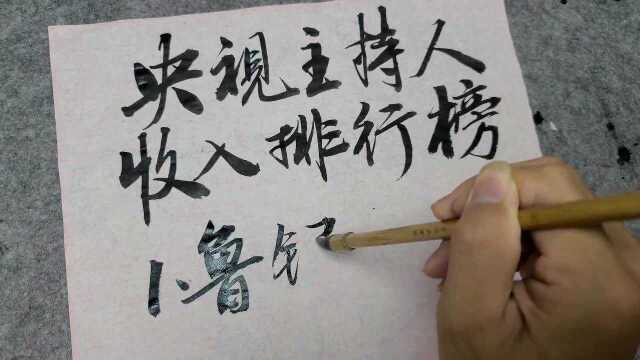 央視主持人
收入排行榜
1、魯